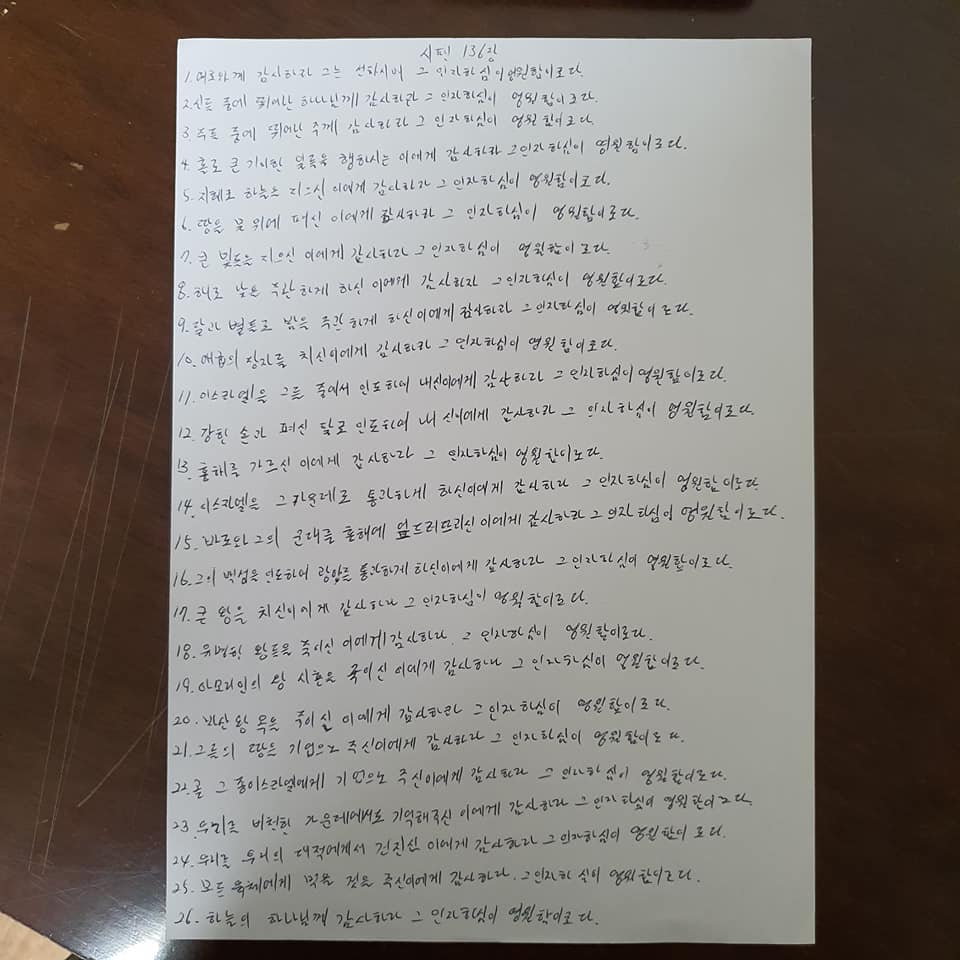 시편 136장
1. 여호와께 감사하라 그는 선하시며 그 인자하심이 영원함이로다.
2. 신들 중에 뛰어난 하나님께 감사하라 그 인자하심이 영원함이로다.
3. 주들 중에 뛰어난 주께 감사하라 그 인자하심이 영원함이로다.
4. 홀로 큰 기이한 일들을 행하시는 이에게 감사하라 그 인자하심이 영원함이로다.
5. 지혜로 하늘을 지으신 이에게 감사하라 그 인자하심이 영원함이로다.
6. 땅을 물 위에 펴신 이에게 감사하라 그 인자하심이 영원함이로다.
7. 큰 빛들을 지으신 이에게 감사하라 그 인자하심이 영원함이로다.
8. 해로 낮을 주관하게 하신 이에게 감사하라 그 인자하심이 영원함이로다.
9. 달과 별들로 밤을 주관하게 하신이에게 감사하라 그 인자하심이 영원함이로다.
10. 애굽의 장자를 치신이에게 감사하라 그 인자하심이 영원함이로다.
11. 이스라엘을 그들 중에서 인도하여 내신이에게 감사하라 그 인자하심이 영원함이로다.
12. 강한 손과 펴신 팔로 인도하여 내신이에게 감사하라 그 인자하심이 영원함이로다.
13. 홍해를 가르신 이에게 감사하라 그 인자하심이 영원함이로다.
14. 이스라엘을 그 가운데로 통과하게 하신이에게 감사하라 그 인자하심이 영원함이로다.
15. 바로와 그의 군대를 홍해에 엎드러뜨리신 이에게 감사하라 그 인자하심이 영원함이로다.
16. 그의 백성을 인도하여 광야를 통과하게 하신이에게 감사하라 그 인자하심이 영원함이로다.
17. 큰 왕을 치신이에게 감사하라 그 인자하심이 영원함이로다.
18. 유명한 왕들을 죽이신 이에게 감사하라. 그 인자하심이 영원함이로다.
19. 아모리인의 왕 시혼을 죽이신 이에게 감사하라 그 인자하심이 영원함이로다.
20. 바산 왕 옥을 죽이신 이에게 감사하라 그 인자하심이 영원함이로다.
21. 그들의 땅을 기업으로 주신이에게 감사하라 그 인자하심이 영원함이로다.
22. 곧 그 종이스라엘에게 기업으로 주신이에게 감사하라 그 인자하심이 영원함이로다.
23. 우리를 비천한 가운데에서도 기억해주신 이에게 감사하라 그 인자하심이 영원함이로다.
24. 우리를 우리의 대적에게서 건지신 이에게 감사하라 그 인자하심이 영원함이로다.
25. 모든 육체에게 먹을 것을 주신이에게 감사하라. 그 인자하심이 영원함이로다.
26. 하늘의 하나님께 감사하라 그 인자하심이 영원함이로다.